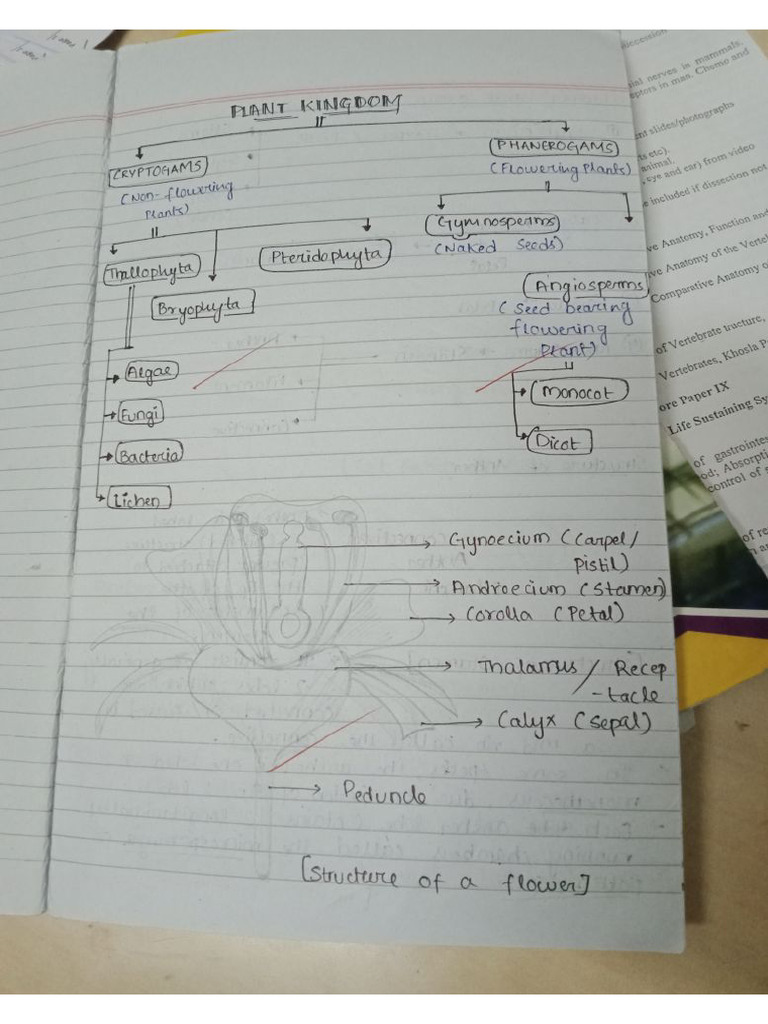 PLANT KINGDOM
CRYPTOGAMS
(Non-flowering
Plants)
PHANEROGAMS
(Flowering Plants)
Thallophyta
Bryophyta
Pteridophyta
Gymnosperms
(Naked Seeds)
Angiosperms
(Seed bearing
flowering
Plant)
Algae
Fungi
Bacteria
Lichen
Monocot
Dicot
Gynoecium (Carpel/
Pistil)
Androecium (Stamen)
Corolla (Petal)
Thalamus / Recep
-tacle
Calyx (Sepal)
Peduncle
[Structure of a flower]
ial nerves in mammals.
eptors in man. Chemo and
nt slides/photographs
ts etc).
animal.
, eye and ear) from video
e included if dissection not
ve Anatomy, Function and
ive Anatomy of the Verteb
Comparative Anatomy o
of Vertebrate tructure,
Vertebrates, Khosla P
ore Paper IX
Life Sustaining Sy
of gastrointes
od; Absorpti
control of s
of re